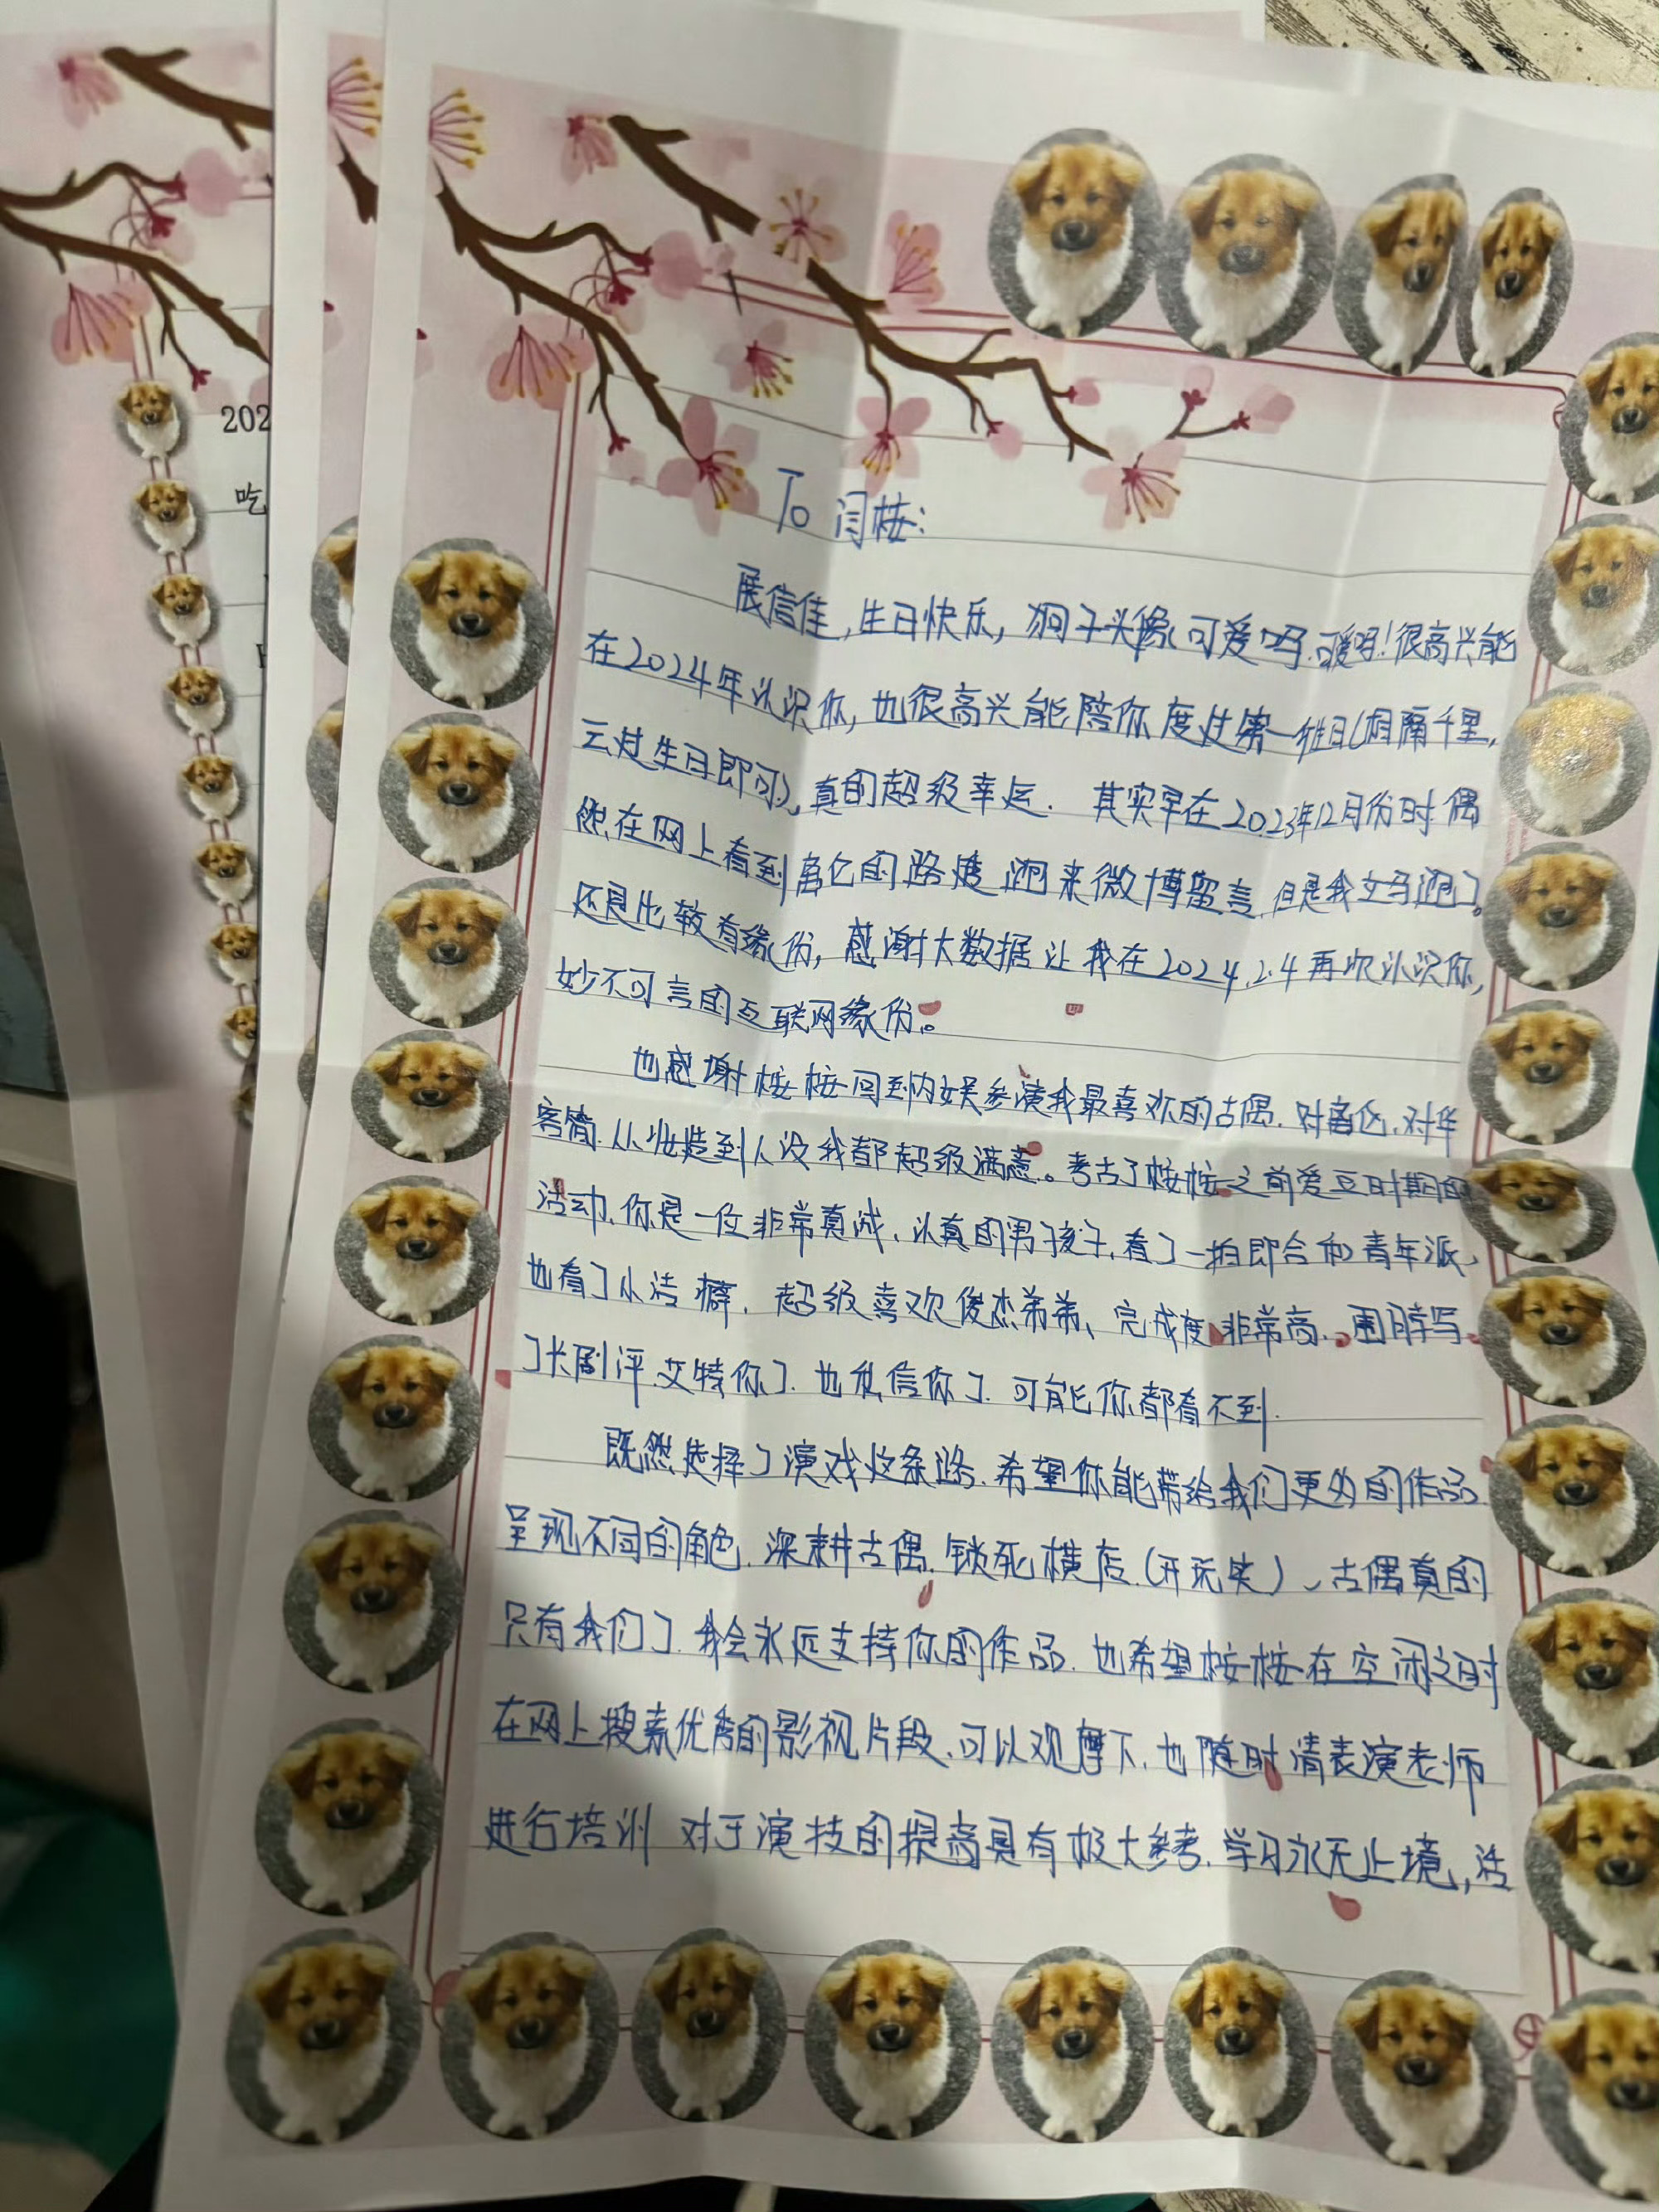 To 闫桉:
展信佳,生日快乐,狗子头像可爱吗.可爱吗!很高兴能
在2024年认识你,也很高兴能陪你度过第一个生日(相隔千里,
云过生日即可),真的超级幸运. 其实早在2023年12月份时偶
然在网上看到离仑的路透跑来微博留言.但是我立马跑了。
还是比较有缘份,感谢大数据让我在2024.2.4再次认识你,
妙不可言的互联网缘份。
也感谢桉桉回到内娱参演我最喜欢的古偶.对离仑.对华
客简.从妆造到人设我都超级满意。考古了桉桉之前爱豆时期的
活动.你是一位非常真诚、认真的男孩子,看了一拍即合和青年派、
也看了小洁癖. 超级喜欢俊杰弟弟、完成度非常高.围脖写
了长剧评.艾特你了.也私信你了.可能你都看不到.
既然选择了演戏这条路.希望你能带给我们更多的作品
呈现不同的角色.深耕古偶.锁死横店.(开玩笑)、古偶真的
只有我们了.我会永远支持你的作品.也希望桉桉在空闲之时
在网上搜索优秀的影视片段、可以观摩下.也随时请表演老师
进行培训 对于演技的提高具有极大参考.学习永无止境,活
202
吃